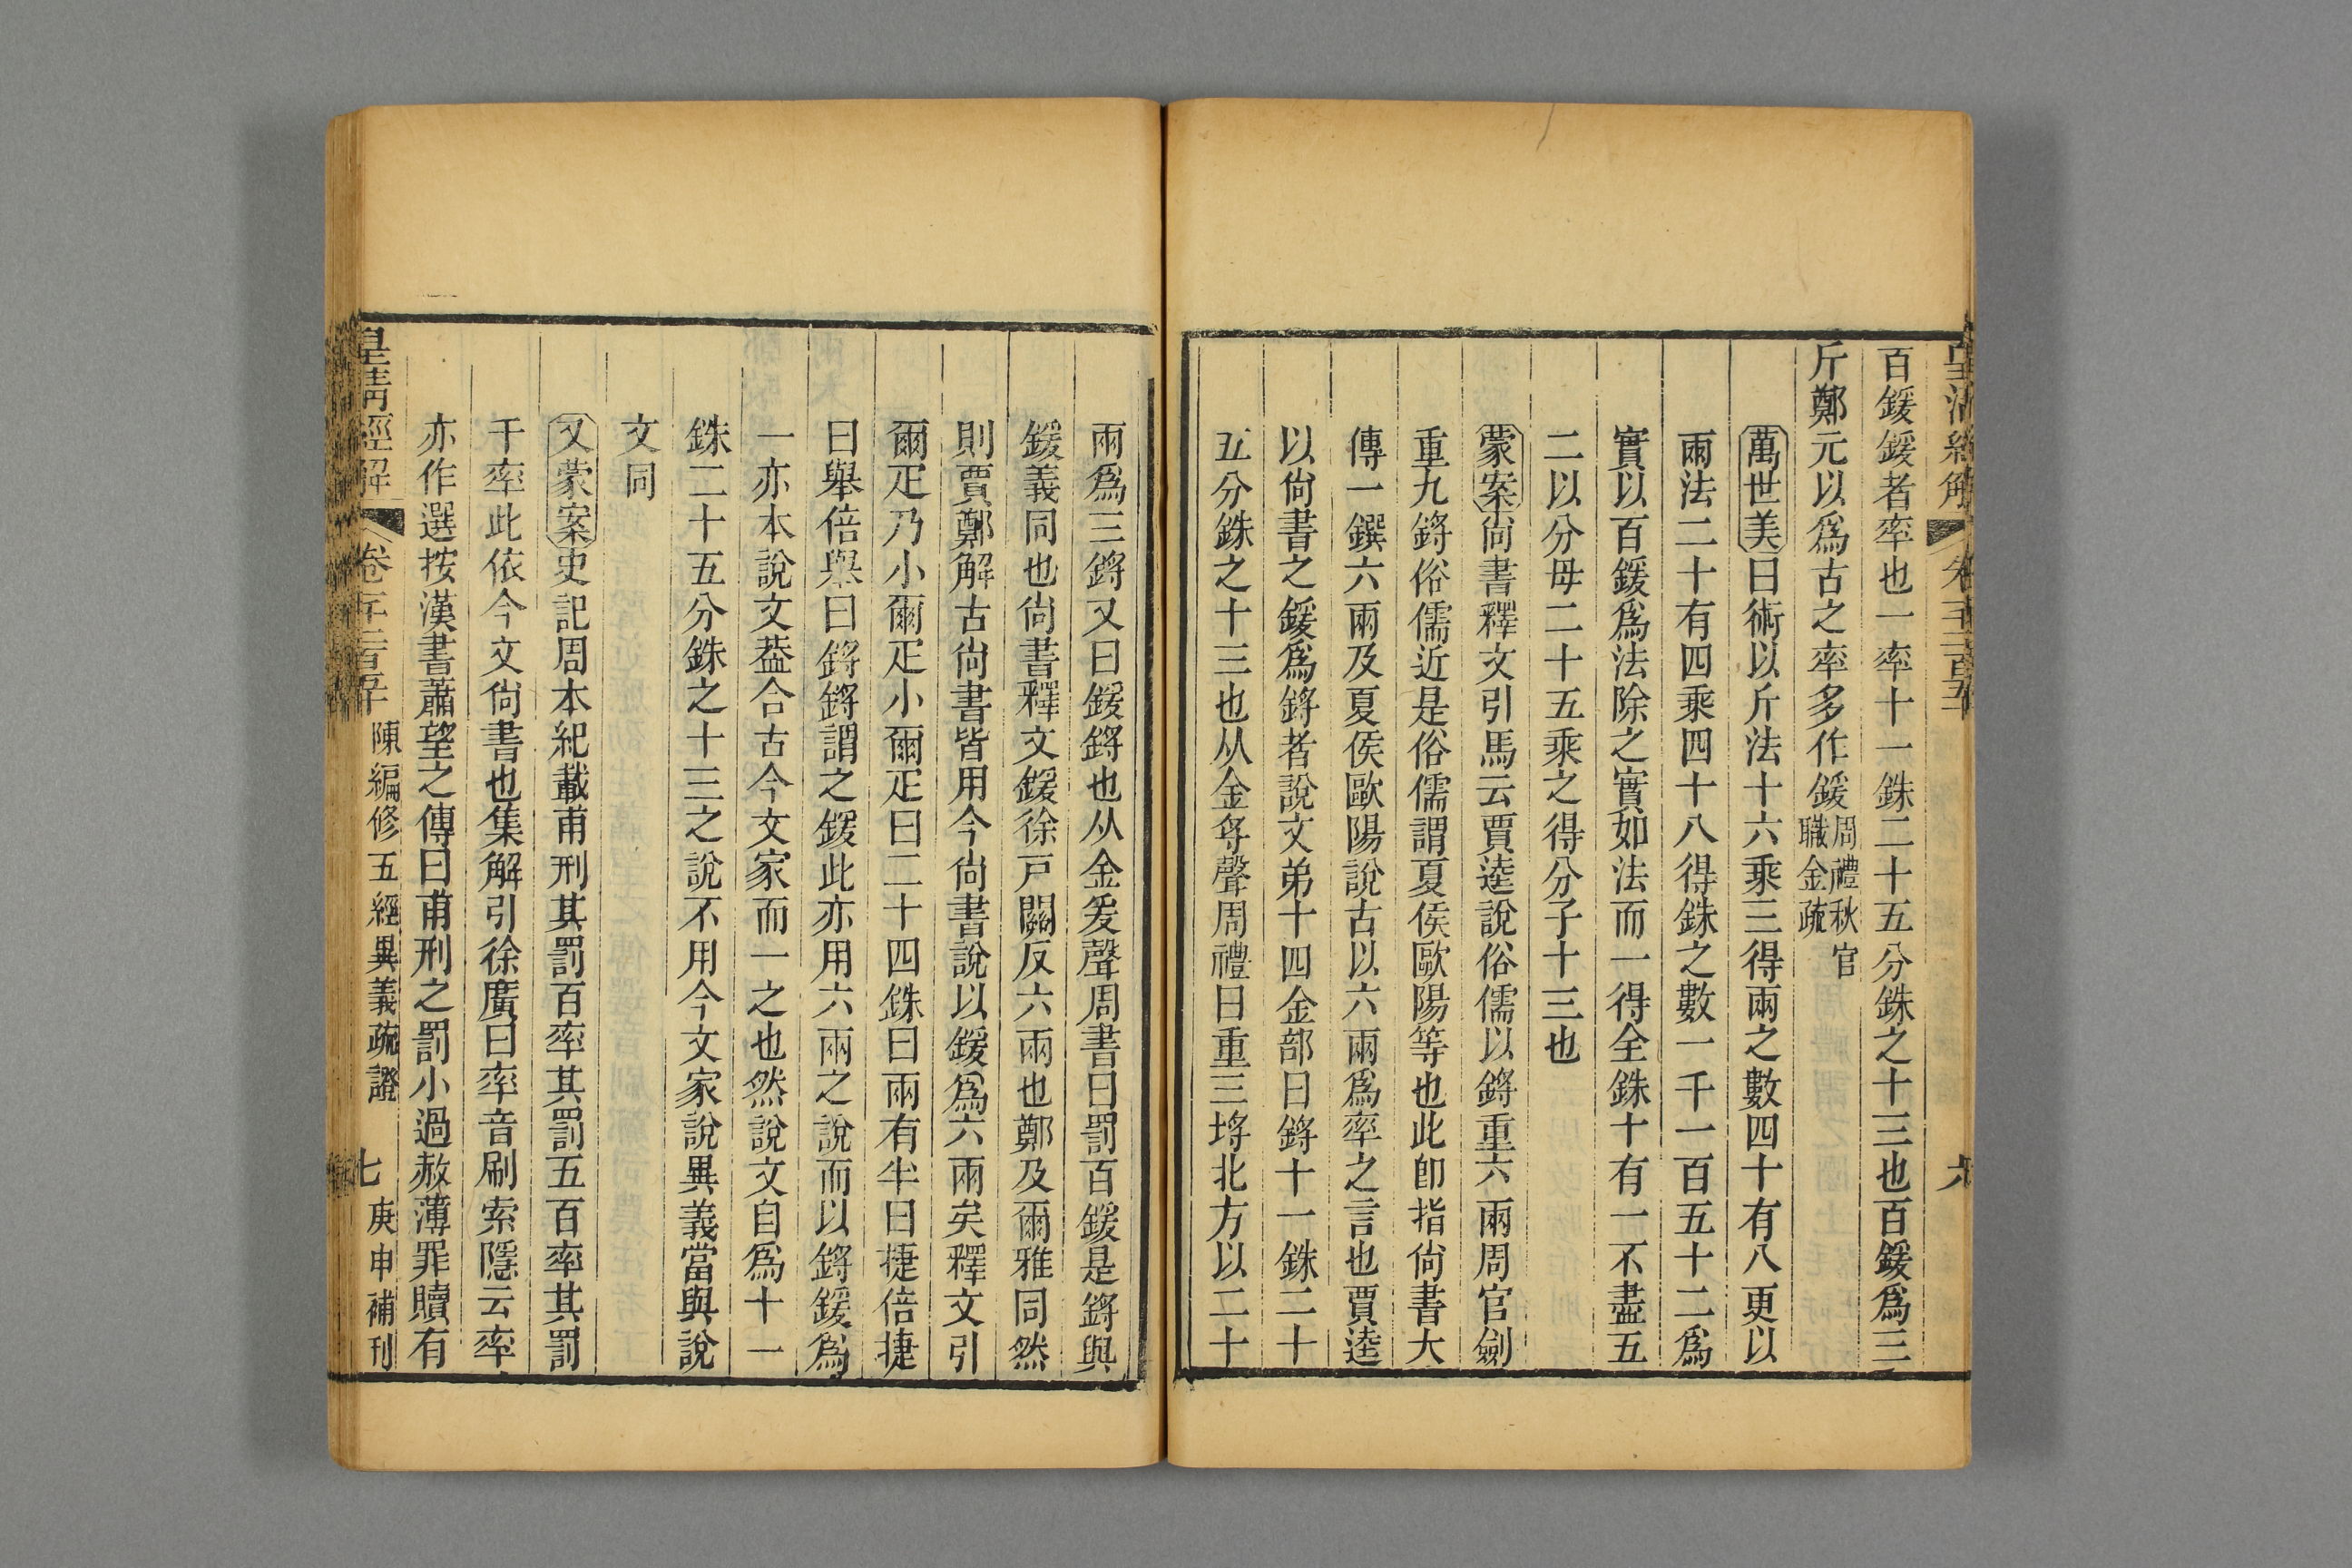 百鍰鍰者率也一率十一銖二十五分銖之十三也百鍰爲三
斤鄭元以爲古之率多作鍰周禮秋官職金疏
萬世美曰術以斤法十六乘三得兩之數四十有八更以
兩法二十有四乘四十八得銖之數一千一百五十二爲
實以百鍰爲法除之實如法而一得全銖十有一不盡五
二以分母二十五乘之得分子十三也
蒙案尚書釋文引馬云賈逵說俗儒以鋝重六兩周官劍
重九鋝俗儒近是俗儒謂夏侯歐陽等也此卽指尚書大
傳一鐉六兩及夏侯歐陽說古以六兩爲率之言也賈逵
以尚書之鍰爲鋝者說文弟十四金部曰鋝十一銖二十
五分銖之十三也从金寽聲周禮曰重三垺北方以二十
兩爲三鋝又曰鍰鋝也从金爰聲周書曰罰百鍰是鋝與
鍰義同也尚書釋文鍰徐戸關反六兩也鄭及爾雅同然
則賈鄭解古尚書皆用今尚書說以鍰爲六兩矣釋文引
爾疋乃小爾疋小爾疋曰二十四銖曰兩有半曰捷倍捷
曰舉倍舉曰鋝鋝謂之鍰此亦用六兩之說而以鋝鍰爲
一亦本說文葢合古今文家而一之也然說文自爲十一
銖二十五分銖之十三之說不用今文家說異義當與說
文同
又蒙案史記周本紀載甫刑其罰百率其罰五百率其罰
千率此依今文尚書也集解引徐廣曰率音刷索隱云率
亦作選按漢書蕭望之傳曰甫刑之罰小過赦薄罪贖有
皇清經解 卷千二百五十 陳編修五經異義疏證 七 庚申補刊